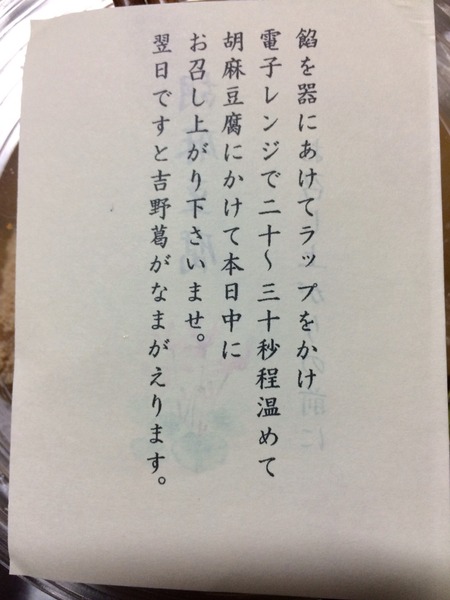 餡を器にあけてラップをかけ
電子レンジで二十〜三十秒程温めて
胡麻豆腐にかけて本日中に
お召し上がり下さいませ。
翌日ですと吉野葛がなまがえります。